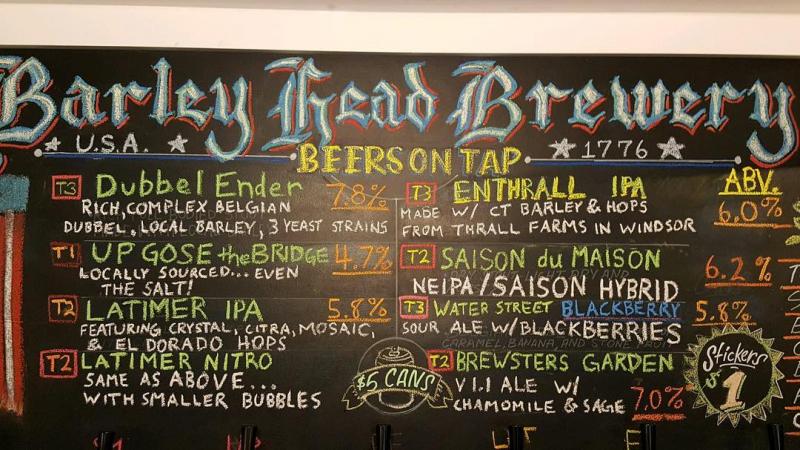 Barley Head Brewery
U.S.A.
1776
BEERS ON TAP
T3 Dubbel Ender 7.8%
RICH, COMPLEX BELGIAN
DUBBEL, LOCAL BARLEY, 3 YEAST STRAINS
T1 UP GOSE the BRIDGE 4.7%
LOCALLY SOURCED... EVEN
THE SALT!
T2 LATIMER IPA 5.8%
FEATURING CRYSTAL, CITRA, MOSAIC,
& EL DORADO HOPS
T2 LATIMER NITRO
SAME AS ABOVE...
WITH SMALLER BUBBLES
$5 CANS
ABV.
T3 ENTHRALL IPA 6.0%
MADE W/ CT BARLEY & HOPS
FROM THRALL FARMS IN WINDSOR
T2 SAISON du MAISON 6.2%
NEIPA/SAISON HYBRID
T3 WATER STREET BLACKBERRY 5.8%
SOUR ALE W/BLACKBERRIES
CARAMEL, BANANA, AND STONE FRUIT
T2 BREWSTERS GARDEN
V1.1 ALE W/
CHAMOMILE & SAGE 7.0%
Stickers
$1